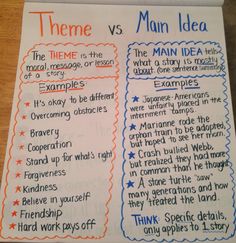 Theme vs. Main Idea
The THEME is the
moral, message, or lesson
of a story.
Examples
It's okay to be different
Overcoming obstacles
Bravery
Cooperation
Stand up for what's right
Forgiveness
Kindness
Believe in yourself
Friendship
Hard work pays off
The MAIN IDEA tells
what a story is mostly
about. (one sentence summary)
Examples
Japanese-Americans
were unfairly placed in the
internment camps
Marianne rode the
orphan train to be adopted,
but hoped to see her mom
Crash bullied Webb,
but realized they had more
in common than he thought.
A stone turtle "saw"
many generations and how
they treated the land.
THINK: Specific details,
only applies to 1 story